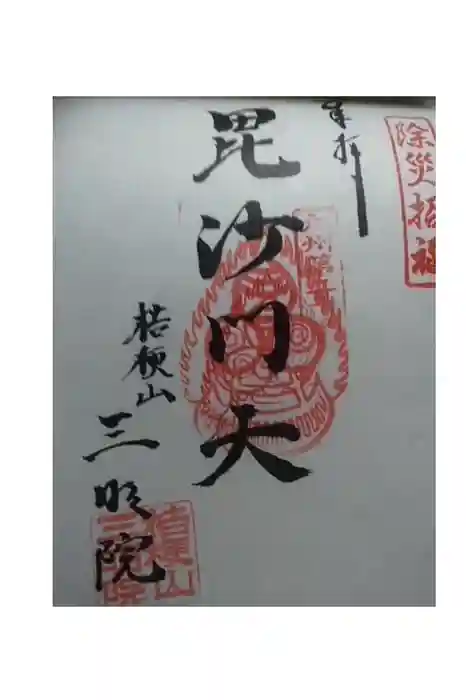 除災招福
奉拝
毘沙門天
桔梗山
三明院